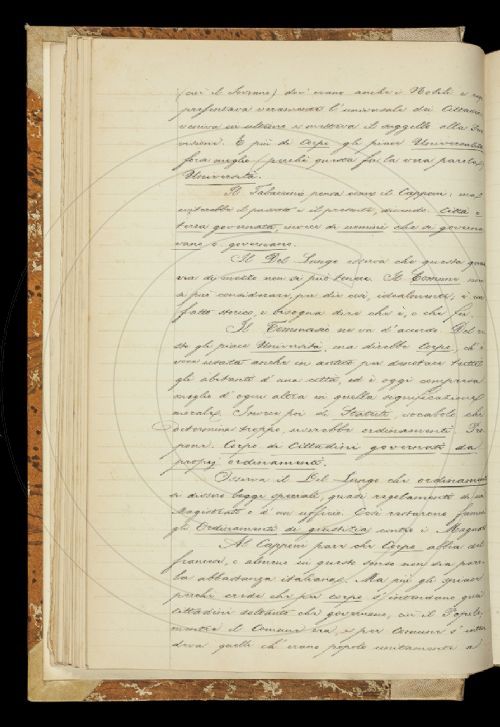 (cui il Sovrano) dov' erano anche i Nobili e rap
presentava veramente l'universale dei Cittadini
veniva in ultimo e metteva il suggello alla
visione. E più di Corpo gli piace Università
fora meglio, perchè questa fu la vera parola,
Università.
Il Tabarrini pensa come il Capponi; ma
metterebbe il passato e il presente, dicendo: Città e
terra governata, invece di uomini che si governa
vano o governano.
Il Del Lungo osserva che questa
non si può tenere. Il Comune non
si può considerare, per dir così, idealmente; è un
fatto storico, e bisogna dire che è, o che fu.
Il Tommaseo ne va d'accordo. Del re
sto gli piace Università, ma direbbe Corpo, ch'è
voce usata anche in antico per denotare tutti
gli abitanti d'una città, ed è oggi compresa
meglio d'ogni altra in quella significazione
morale. Invece poi di Statuti, vocabolo che
determina troppo, userebbe ordinamenti. Pro
pone: Corpo di Cittadini governati da
proprj ordinamenti.
Osserva il Del Lungo che ordinamenti
si dissero leggi speciali, quasi regolamenti di un
Magistrato o d'un ufficio. Così restarono famosi
gli Ordinamenti di giustizia contro i Magnati.
Al Capponi pare che Corpo abbia del
francese, o almeno in questo senso non sia paro
la abbastanza italiana. Ma più gli spiace
perchè crede che per corpo s'intendano quei
cittadini soltanto che governano, cui il Popolo,
mentre il Comune era, e per Comune s'inten
deva quelli ch'erano popolo unitamente a